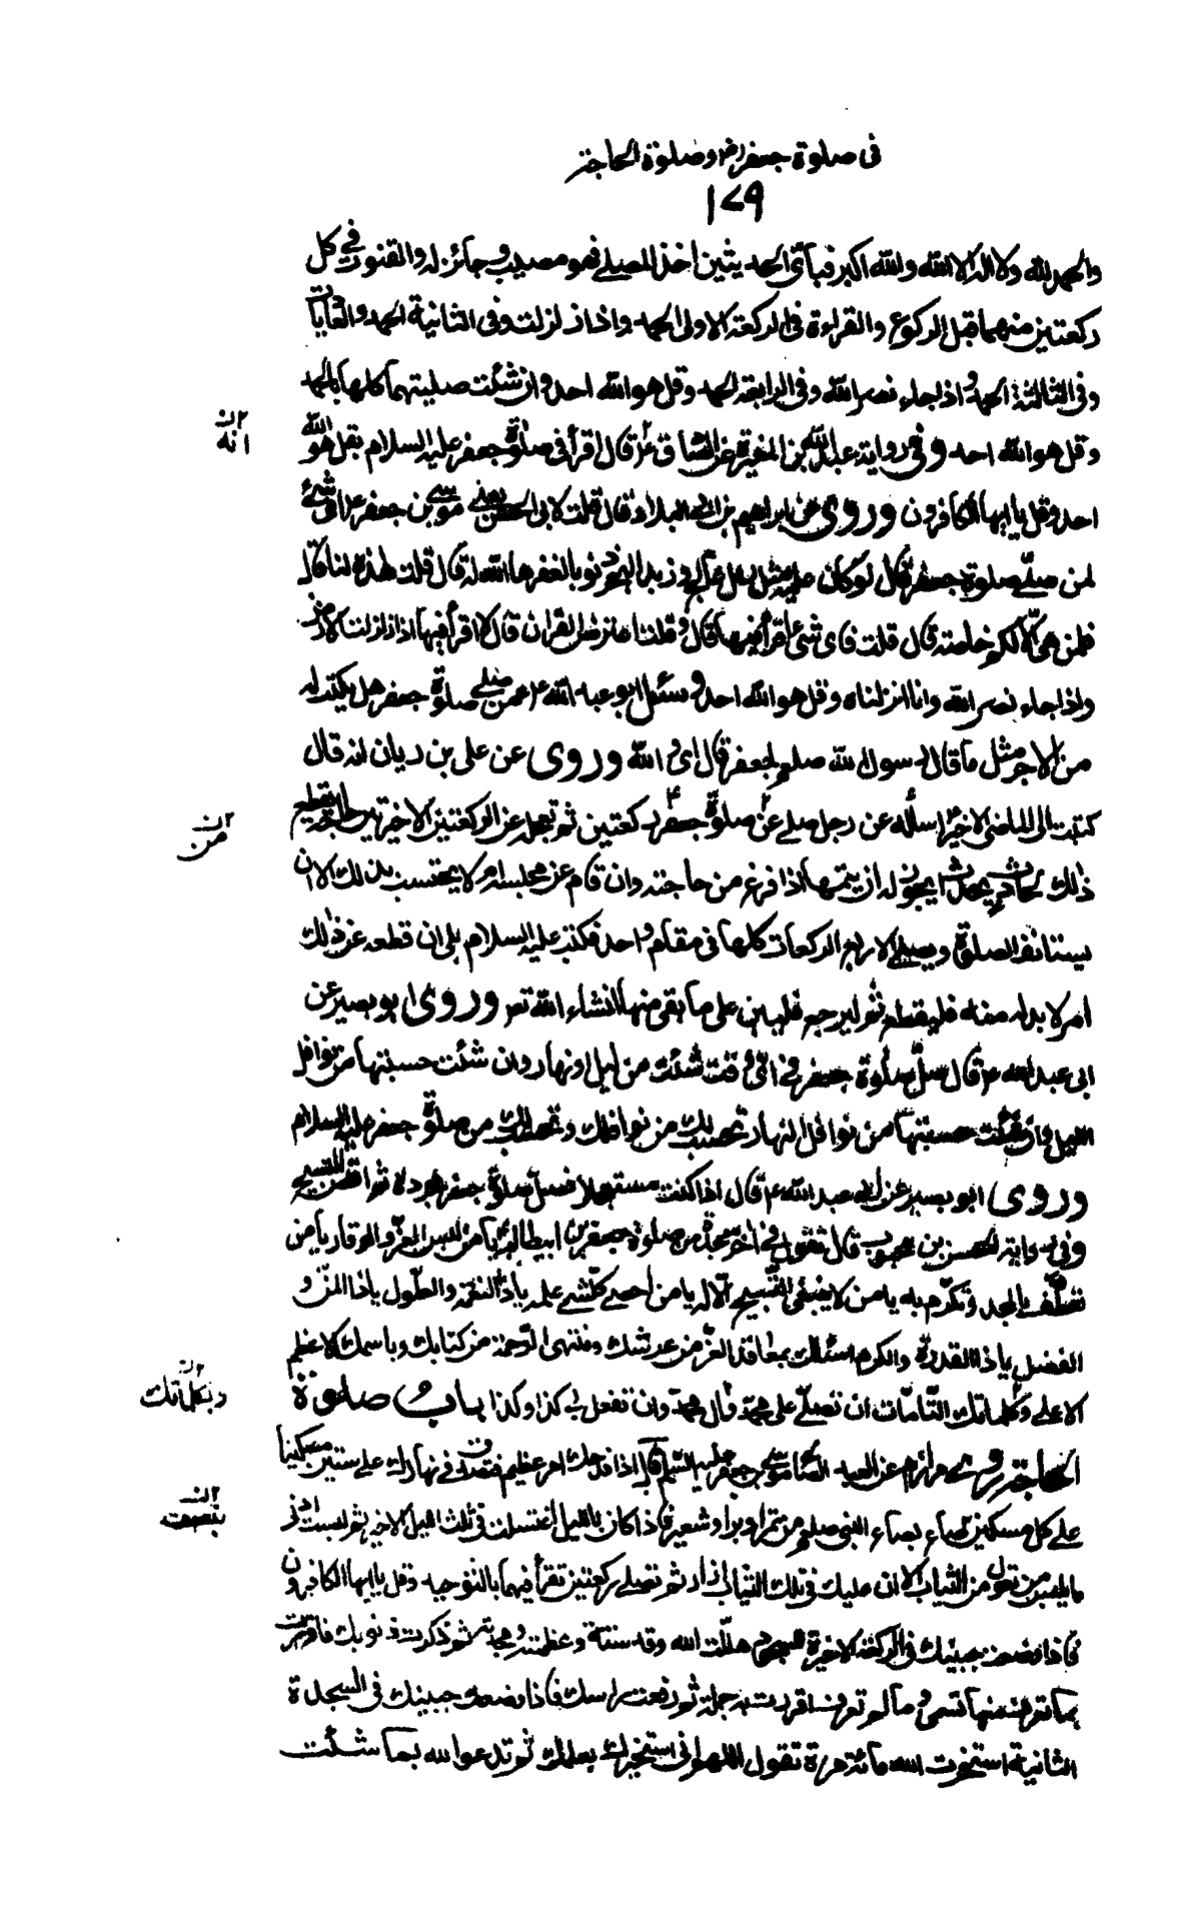 في صلوة جعفر رض وصلوة الحاجة
١٧٩
والحمد لله ولا اله الا الله والله اكبر فباى الحديثين اخذ المصلى فهو مصيب وجائز له والقنوت في كل
ركعتين منهما قبل الركوع والقراءة فى الركعة الاولى الحمد واذا زلزلت وفى الثانية الحمد والعاديات
وفى الثالثة الحمد واذا جاء نصر الله وفى الرابعة الحمد وقل هو الله احد وان شئت صليتهما كلها بالحمد
وقل هو الله احد وفى رواية عبد الله بن المغيرة عن الصادق ع قال اقرأ فى صلوة جعفر عليه السلام بقل هو الله
احد وقل يا ايها الكافرون وروى عن ابراهيم بن ابى البلاد قال قلت لابى الحسن يعنى موسى بن جعفر ع اى شئ
لمن صلى صلوة جعفر قال لو كان عليه مثل رمل عالج وزبد البحر ذنوبا لغفرها الله له قال قلت هذه لنا قال
فلمن هى الا لكم خاصة قال قلت فاى شئ اقرأ فيها قال وقلت اعترض القران قال لا اقرأ فيها اذا زلزلت الارض
واذا جاء نصر الله وانا انزلناه وقل هو الله احد وسئل ابو عبد الله ع عمن صلى صلوة جعفر هل يكتب له
من الاجر مثل ما قال رسول الله صلعم لجعفر قال اى والله وروى عن على بن ريان انه قال
كتبت الى الماضى الاخير اسأله عن رجل صلى من صلوة جعفر ركعتين ثم تعجله عن الركعتين الاخيرتين حاجة او يقطع
ذلك بحادث يحدث ايجوز له ان يتمها اذا فرغ من حاجته وان قام عن مجلسه ام لا يحتسب بذلك الا ان
يستانف الصلوة ويصلى الاربع الركعات كلها فى مقام واحد فكتب عليه السلام بلى ان قطعه عن ذلك
امر لا بد له منه فليقطع ثم ليرجع فليبن على ما بقى منها انشاء الله تعـ وروى ابو بصير عن
ابى عبد الله ع قال صل صلوة جعفر فى اى وقت شئت من ليل او نهار وان شئت حسبتها من نوافل
الليل وان شئت حسبتها من نوافل النهار تحسب لك من نوافلك وتحسب لك من صلوة جعفر عليه السلام
وروى ابو بصير عن ابى عبد الله ع قال اذا كنت مستعجلا فصل صلوة جعفر مجردة ثم اقض التسبيح
وفى رواية الحسن بن محبوب قال تقول فى اخر سجدة من صلوة جعفر بن ابيطالب يا من لبس العز والوقار يا من
تعطف بالمجد وتكرم به يا من لا ينبغى التسبيح الا له يا من احصى كلشئ علمه يا ذا النعمة والطول يا ذا المن و
الفضل يا ذا القدرة والكرم اسئلك بمعاقد العز من عرشك ومنتهى الرحمة من كتابك وباسمك الاعظم
الاعلى وكلماتك التامات ان تصلى على محمد وال محمد وان تفعل بى كذا وكذا باب صلوة
الحاجة روى مرازم عن العبد الصالح موسى بن جعفر عليه السلم قال اذا فدحك امر عظيم فتصدق فى نهارك على ستين مسكينا
على كل مسكين صاع بصاع النبى صلعم من تمر او بر او شعير فاذا كان بالليل اغتسلت فى ثلث الليل الاخير ثم لبست ادنى
ما يلبس من تعول من الثياب الا ان عليك فى تلك الثياب ازار ثم تصلى ركعتين تقرأ فيهما بالتوحيد وقل يا ايها الكافرون
فاذا وضعت جبينك فى الركعة الاخيرة للسجود هللت الله وقدسته وعظمته ومجدته ثم ذكرت ذنوبك فاقررت
بما تعرف منها تسمى وما لم تعرف اقررت به جملة ثم رفعت راسك فاذا وضعت جبينك فى السجدة
الثانية استخرت الله مائة مرة تقول اللهم انى استخيرك بعلمك ثم تدعو الله بما شئت
انه
من
وبكلماتك